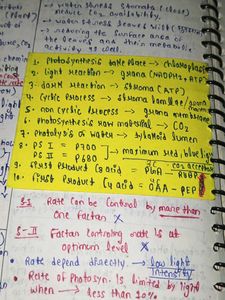 → water stress stomata (close)
reduce CO2 availability.
→ water stress leaves wilt
reducing the surface area of
the leaves and their metabolic
activity as well.
1. Photosynthesis take place → chloroplast
2. light reaction → grana (NADPH2, ATP)
3. dark reaction → stroma (ATP)
4. Cyclic process → stroma lamellae / grana
5. non cyclic process → grana membrane
6. photosynthesis raw material → CO2
7. photolysis of water → thylakoid lumen
8. PS I = P700
PS II = P680 → maximum red, blue light
9. first product C3 acid = PGA
RUBP
10. first product C4 acid = OAA - PEP
S-I Rate can be control by more than
one factor X
S-II Factor controling rate is at
optimum level X
• Rate depend directly → low light
intensity
• Rate of Photosyn. is limited by light
when → less than 10%